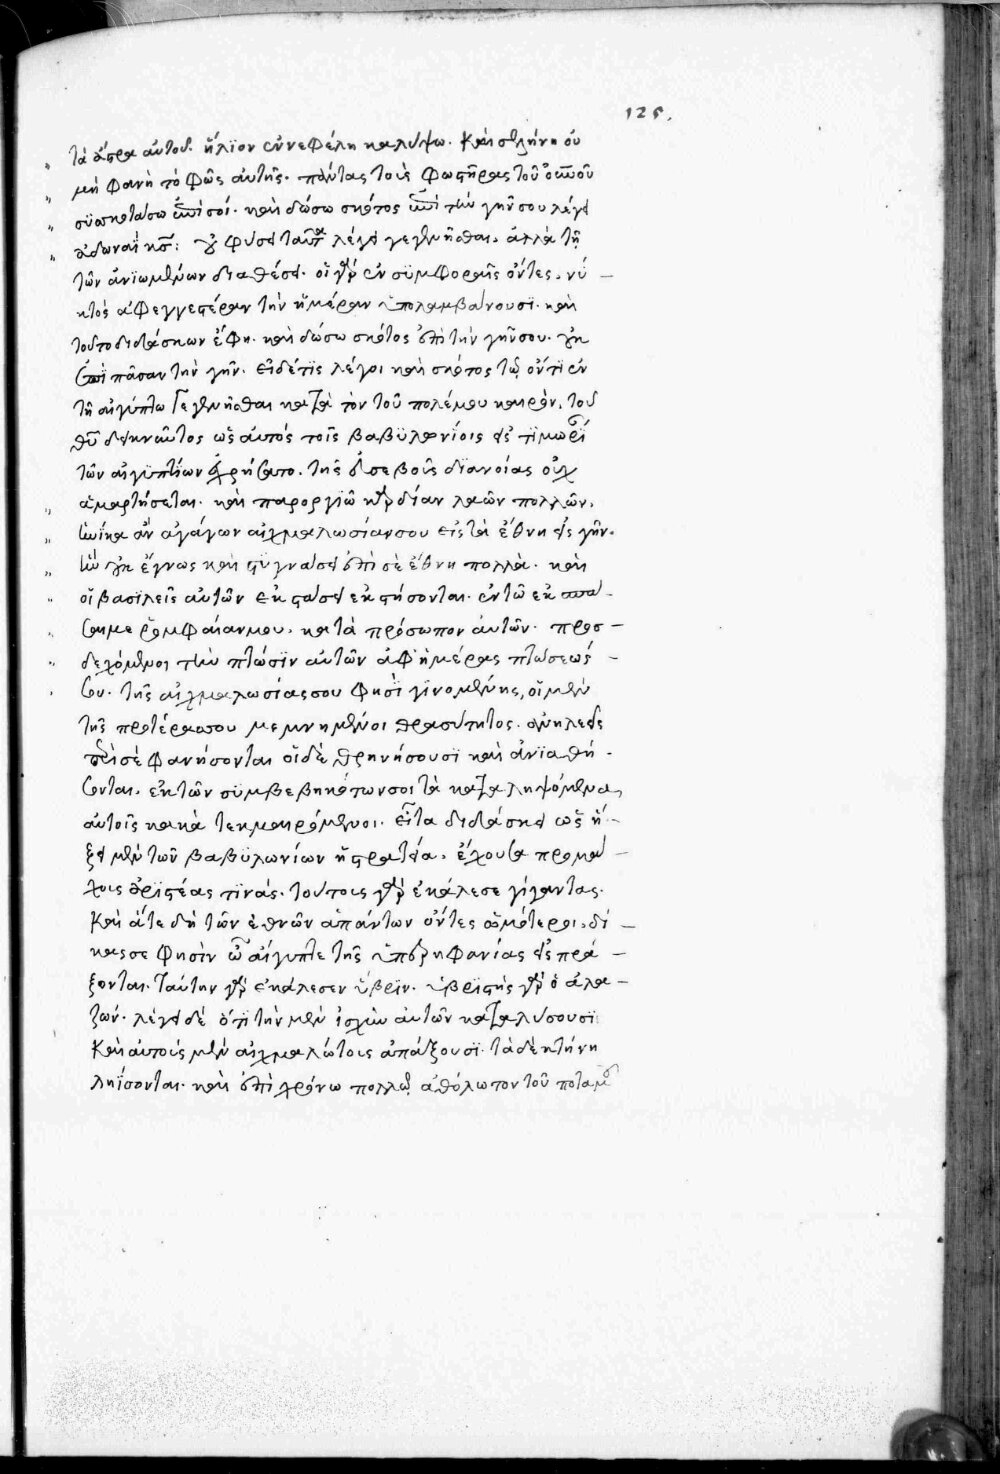 125.
τὰ ἄστρα αὐτοῦ. ἥλϊον ἐν νεφέλη καλύψω. καὶ σελήνη οὐ
μὴ φανῆ τὸ φῶς αὐτῆς. πάντας τοὺς φωστῆρας τοῦ οὐνοῦ
συσκοτάσω ἐπὶ σοί. καὶ δώσω σκότος ἐπὶ τὴν γῆν σου λέγει
ἀδωναῒ κς: οὐ φύσει ταῦτα λέγει γεγενῆσθαι. ἀλλὰ τῇ
τῶν ἀνϊωμένων διαθέσει. οἱ γὰρ ἐν συμφοραῖς ὄντες, νυ
κτὸς ἀφεγγεστέραν τὴν ἡμέραν ὑπολαμβάνουσϊ. καὶ
τοῦτο διδάσκων ἔφη. καὶ δώσω σκότος ἐπὶ τὴν γῆν σου. οὐκ
ἐπὶ πᾶσαν τὴν γῆν. εἰ δέ τις λέγοι καὶ σκότος τῷ ὄντϊ ἐν
τῇ αἰγύπτω γεγενῆσθαι κατὰ τὸν τοῦ πολέμου καιρὸν, τοῦ
θῦ δεικνῦντος ὡς αὐτὸς τοῖς βαβυλωνίοις εἰς τϊμωρϊ
τῶν αἰγυπτίων ἐχρήσατο. τῆς εὐσεβοῦς διανοίας οὐχ
ἁμαρτήσεται. καὶ παροργιῶ καρδίαν λαῶν πολλῶν,
ἡνίκα ἂν ἀγάγων αἰχμαλωσίαν σου εἰς τὰ ἔθνη εἰς γῆν.
ἣν οὐκ ἔγνως καὶ στυγνάσει ἐπὶ σὲ ἔθνη πολλὰ. καὶ
οἱ βασϊλεῖς αὐτῶν ἐκστάσει ἐκστήσονται. ἐν τῶ ἐκσπα
σαι με ῥομφαίαν μου. κατὰ πρόσωπον αὐτῶν. προσ
δεχόμενοι τὴν πτῶσϊν αὐτῶν ἀφ ἡμέρας πτώσεώς
σου. τῆς αἰχμαλωσίας σου φησὶ γϊνομένης, οἱ μὲν
τῆς προτέρας σου μεμνημένοι θρασύτητος. ἀνηλεεῖς
περὶ σὲ φανήσονται οἱ δὲ θρηνήσουσϊ καὶ ἀνϊαθή
σονται. ἐκ τῶν συμβεβηκότων σοι τὰ καταληψόμενα
αὐτοῖς κακὰ τεκμαιρόμενοι. εἶτα διδάσκει ὡς ἥ
ξει μὲν τῶν βαβυλωνίων ἡ στρατεία. ἔχουσα προμά
χους ἀρϊστέας τϊνάς. τούτους γὰρ ἐκάλεσε γίγαντας.
καὶ ἅτε δὴ τῶν ἐθνῶν ἁπάντων ὄντες ὠμότεροι, δί
κας σε φησὶν ὦ αἴγυπτε τῆς ὑπερηφανίας εἰσπρά
ξονται. ταύτην γὰρ ἐκάλεσεν ὕβρϊν. ὑβρϊστὴς γὰρ ὁ ἀλα
ζών. λέγει δὲ ὅτϊ τὴν μὲν ἰσχὺν αὐτῶν καταλύσουσϊ
καὶ αὐτοὺς μὲν αἰχμαλώτους ἀπάξουσϊ. τὰ δὲ κτήνη
ληΐσονται. καὶ ἐπὶ χρόνω πολλῷ ἀθόλωτον τοῦ ποταμοῦ